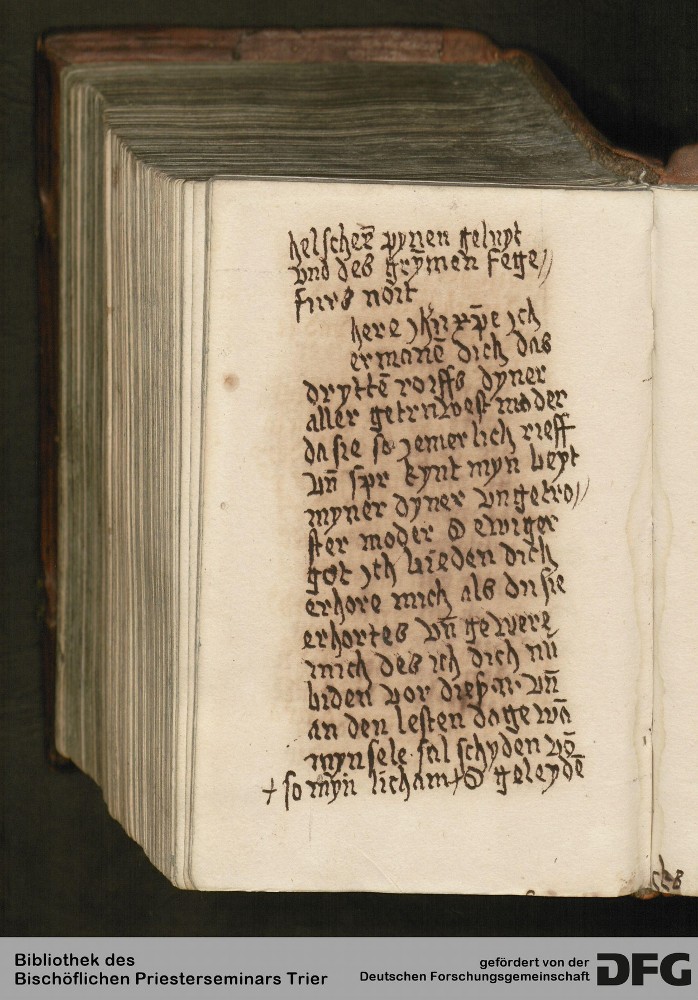 helscher̄ pynen geluyt
vnd des gry̅men fege//
furs noit
here jhu xp̄e ich
ermanē dich das
dryttē roiffs dyner
aller getruwest moder
da sie so jemerlich rieff
vn̄ spr kynt myn beyt
myner dyner vngetro//
ster moder O ewiger
got ich bieden dich
erhore mich als du sie
erhortes vn̄ gewere
mich des ich dich nū
biden vor dieß .N. vn̄
an den lesten dage wā
myn sele sal schyden vō
+ so myn licham + O geleydē
Bibliothek des
Bischöflichen Priesterseminars Trier
gefördert von der
Deutschen Forschungsgemeinschaft
DFG